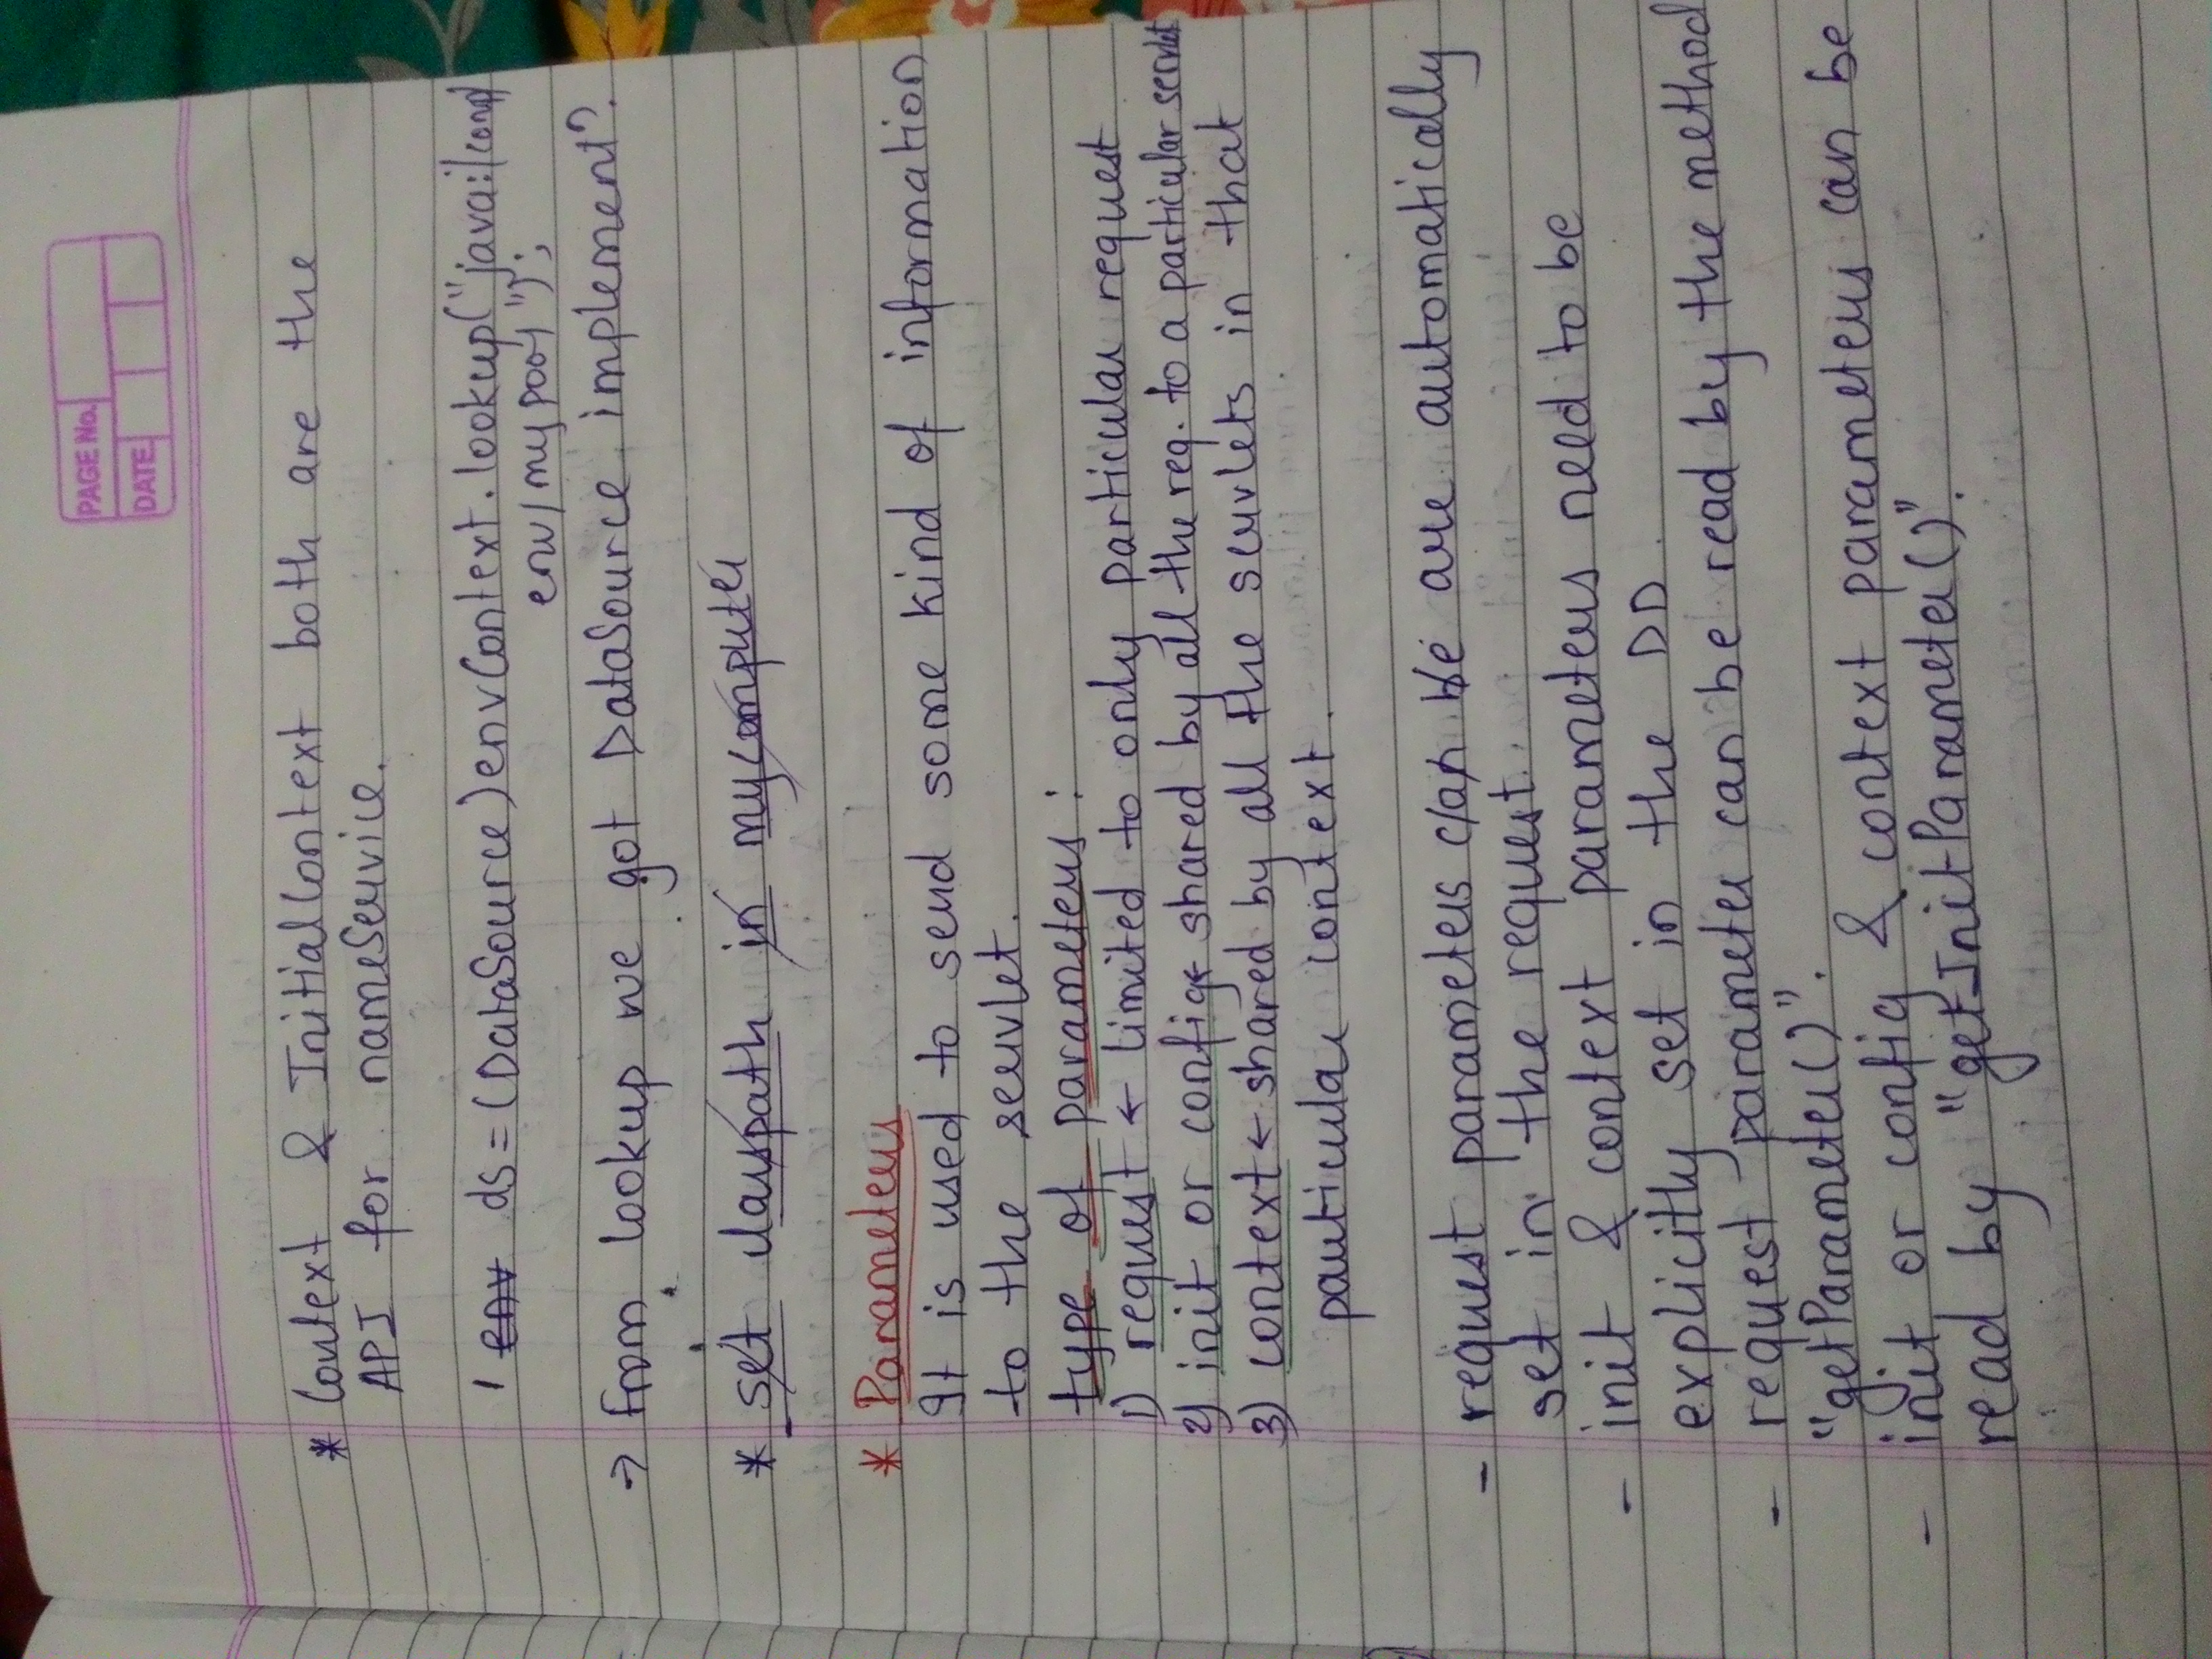 PAGE No.
DATE
* Context & InitialContext both are the
API for nameService.
env ds = (DataSource)envContext.lookup("java:/comp/
env/mypool");
→ from lookup we got DataSource implement?
* set classpath in mycomputer
* Parameters
It is used to send some kind of information
to the servlet.
type of parameters :
1) request ← limited to only particular request
2) init or config ← shared by all the req. to a particular servlet
3) context ← shared by all the servlets in that
particular context.
- request parameters can be are automatically
set in the request.
- init & context parameters need to be
explicitly set in the DD.
- request parameter can be read by the method
"getParameter()".
- init or config & context parameters can be
read by "getInitParameter()".